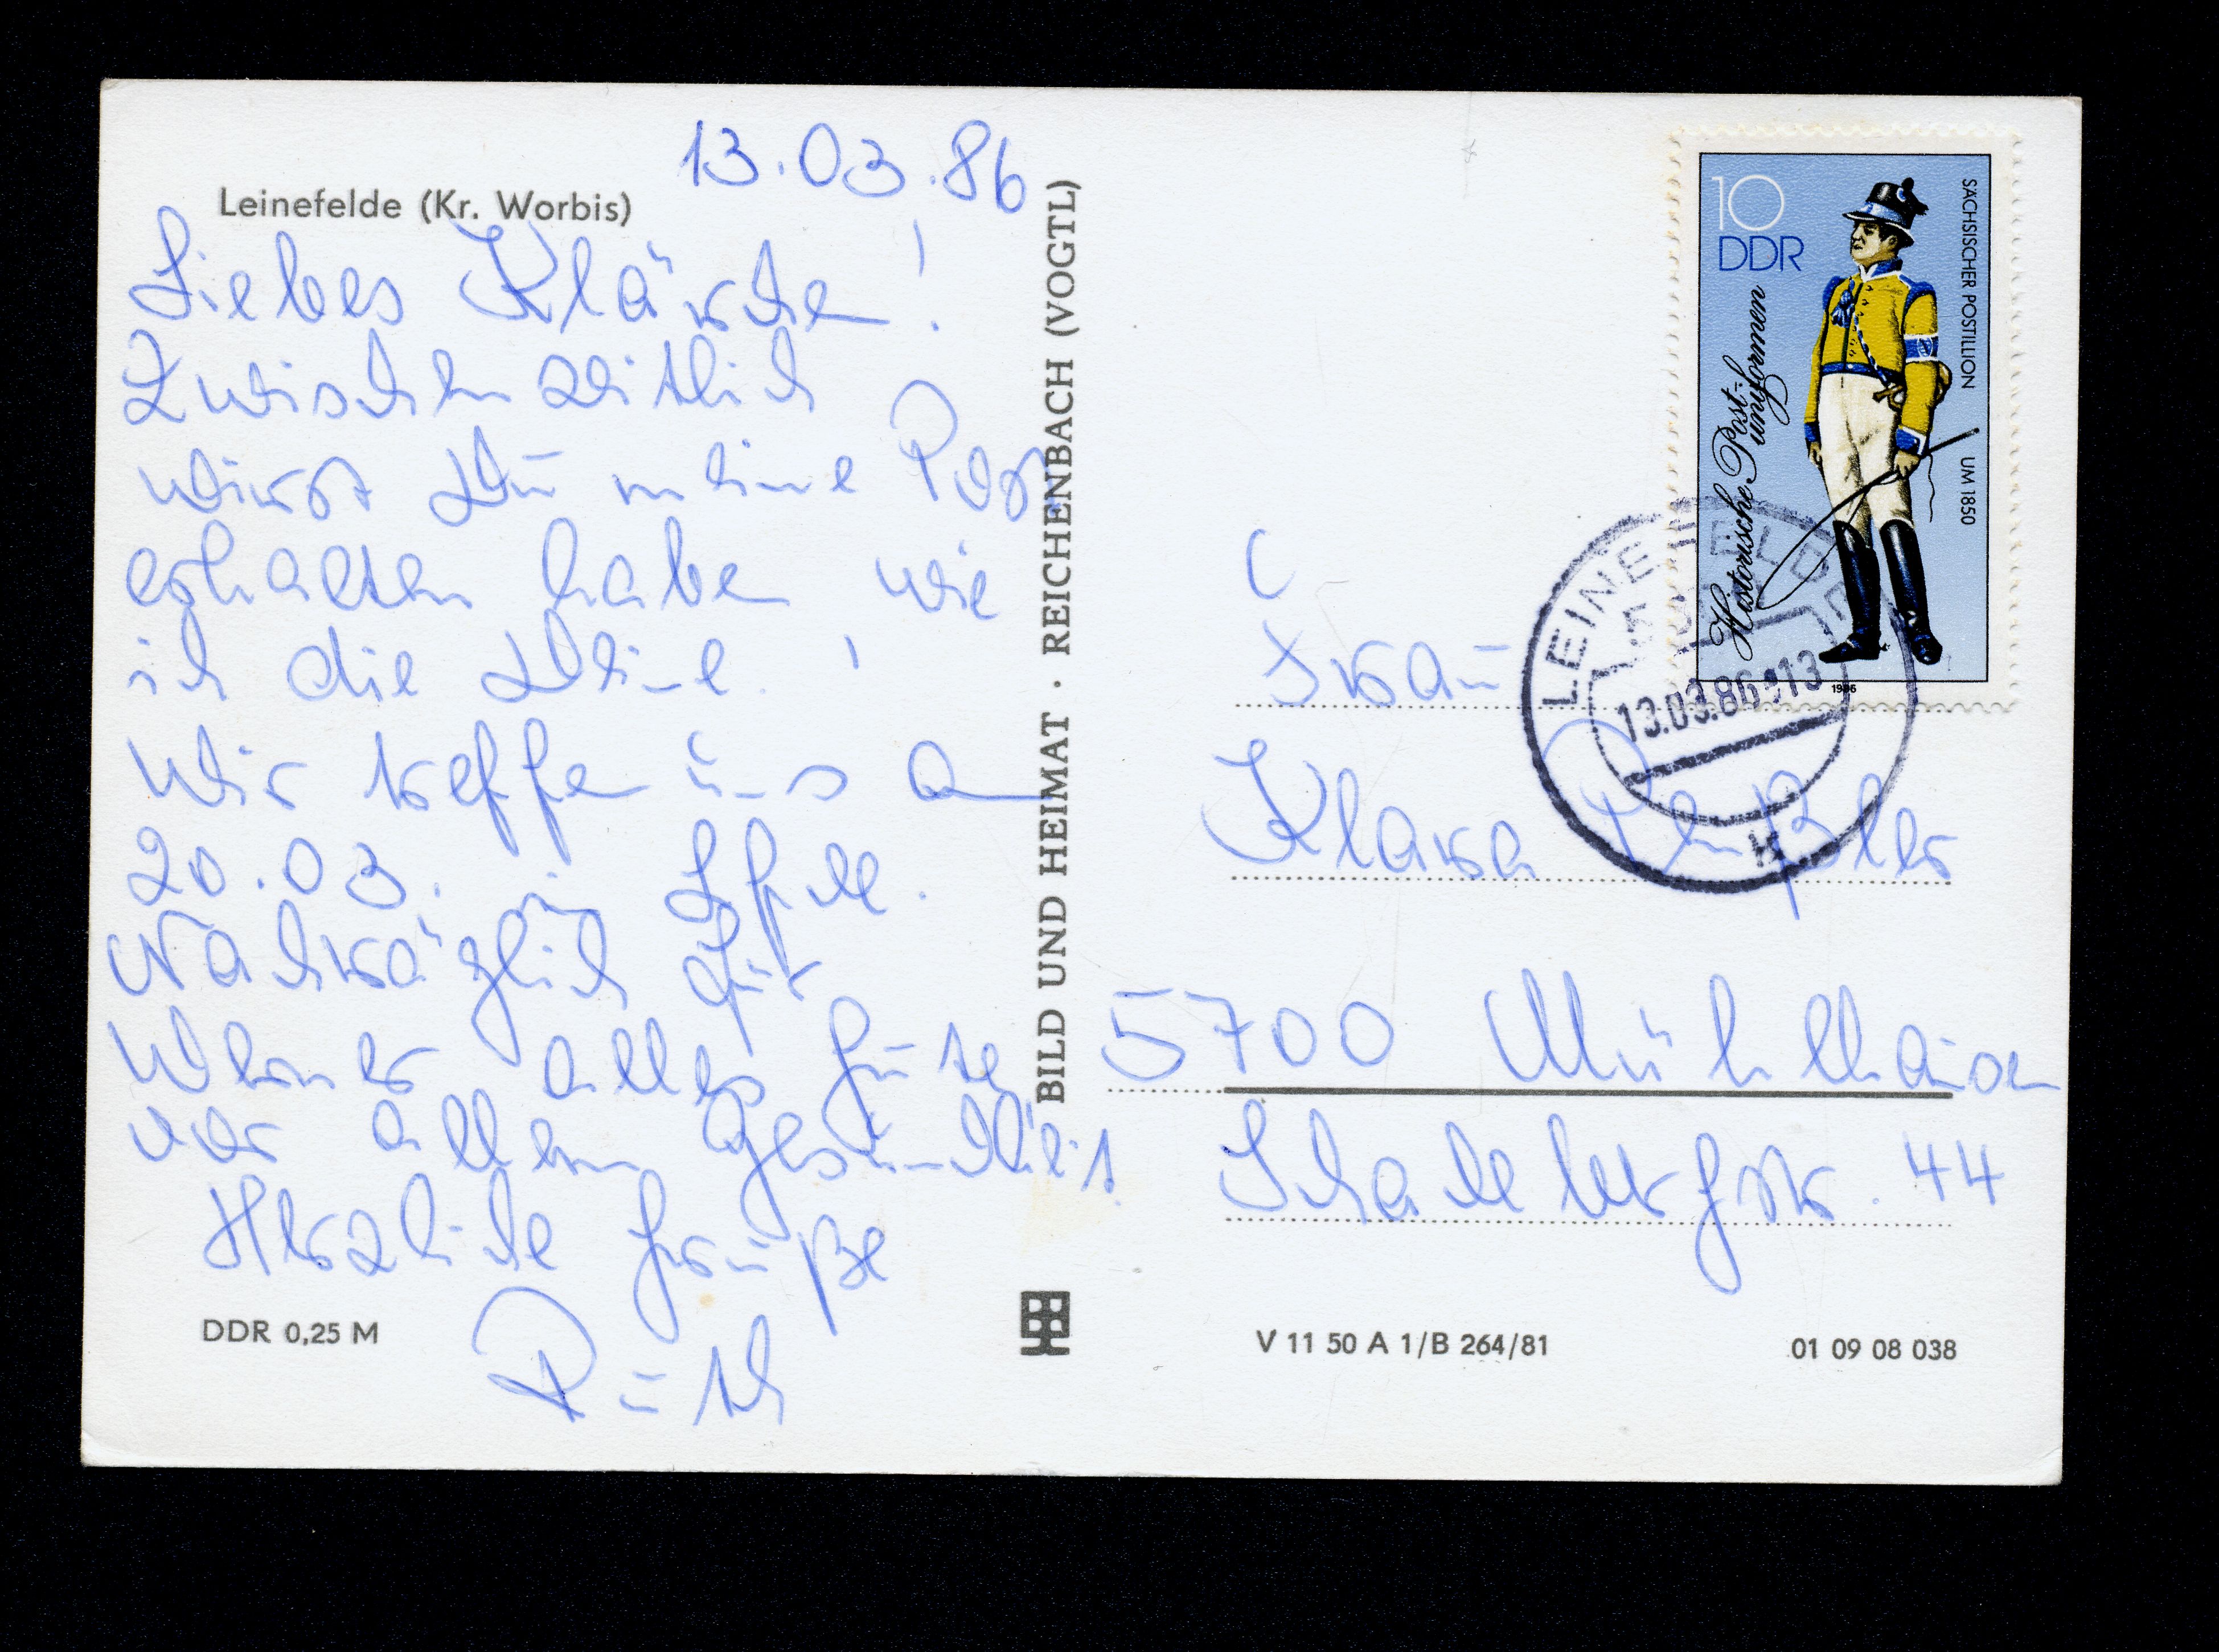 13.03.86
Leinefelde (Kr. Worbis)
Liebes Klärchen!
Zwischenzeitlich
wirst Du meine Post
erhalten haben, wie
ich die Deine.
Wir treffen uns am
20.03. in Lfde.
Nachträglich für
Werner alles Gute
vor allem Gesundheit
Herzliche Grüße
Ruth
DDR 0,25 M
BILD UND HEIMAT · REICHENBACH (VOGTL)
10
DDR
Historische Post-
uniformen
SÄCHSISCHER POSTILLION UM 1850
1986
LEINEFELDE
13.03.86-13
Frau
Klara
5700 Mühlhausen
Schadebergstr. 44
V 11 50 A 1/B 264/81
01 09 08 038